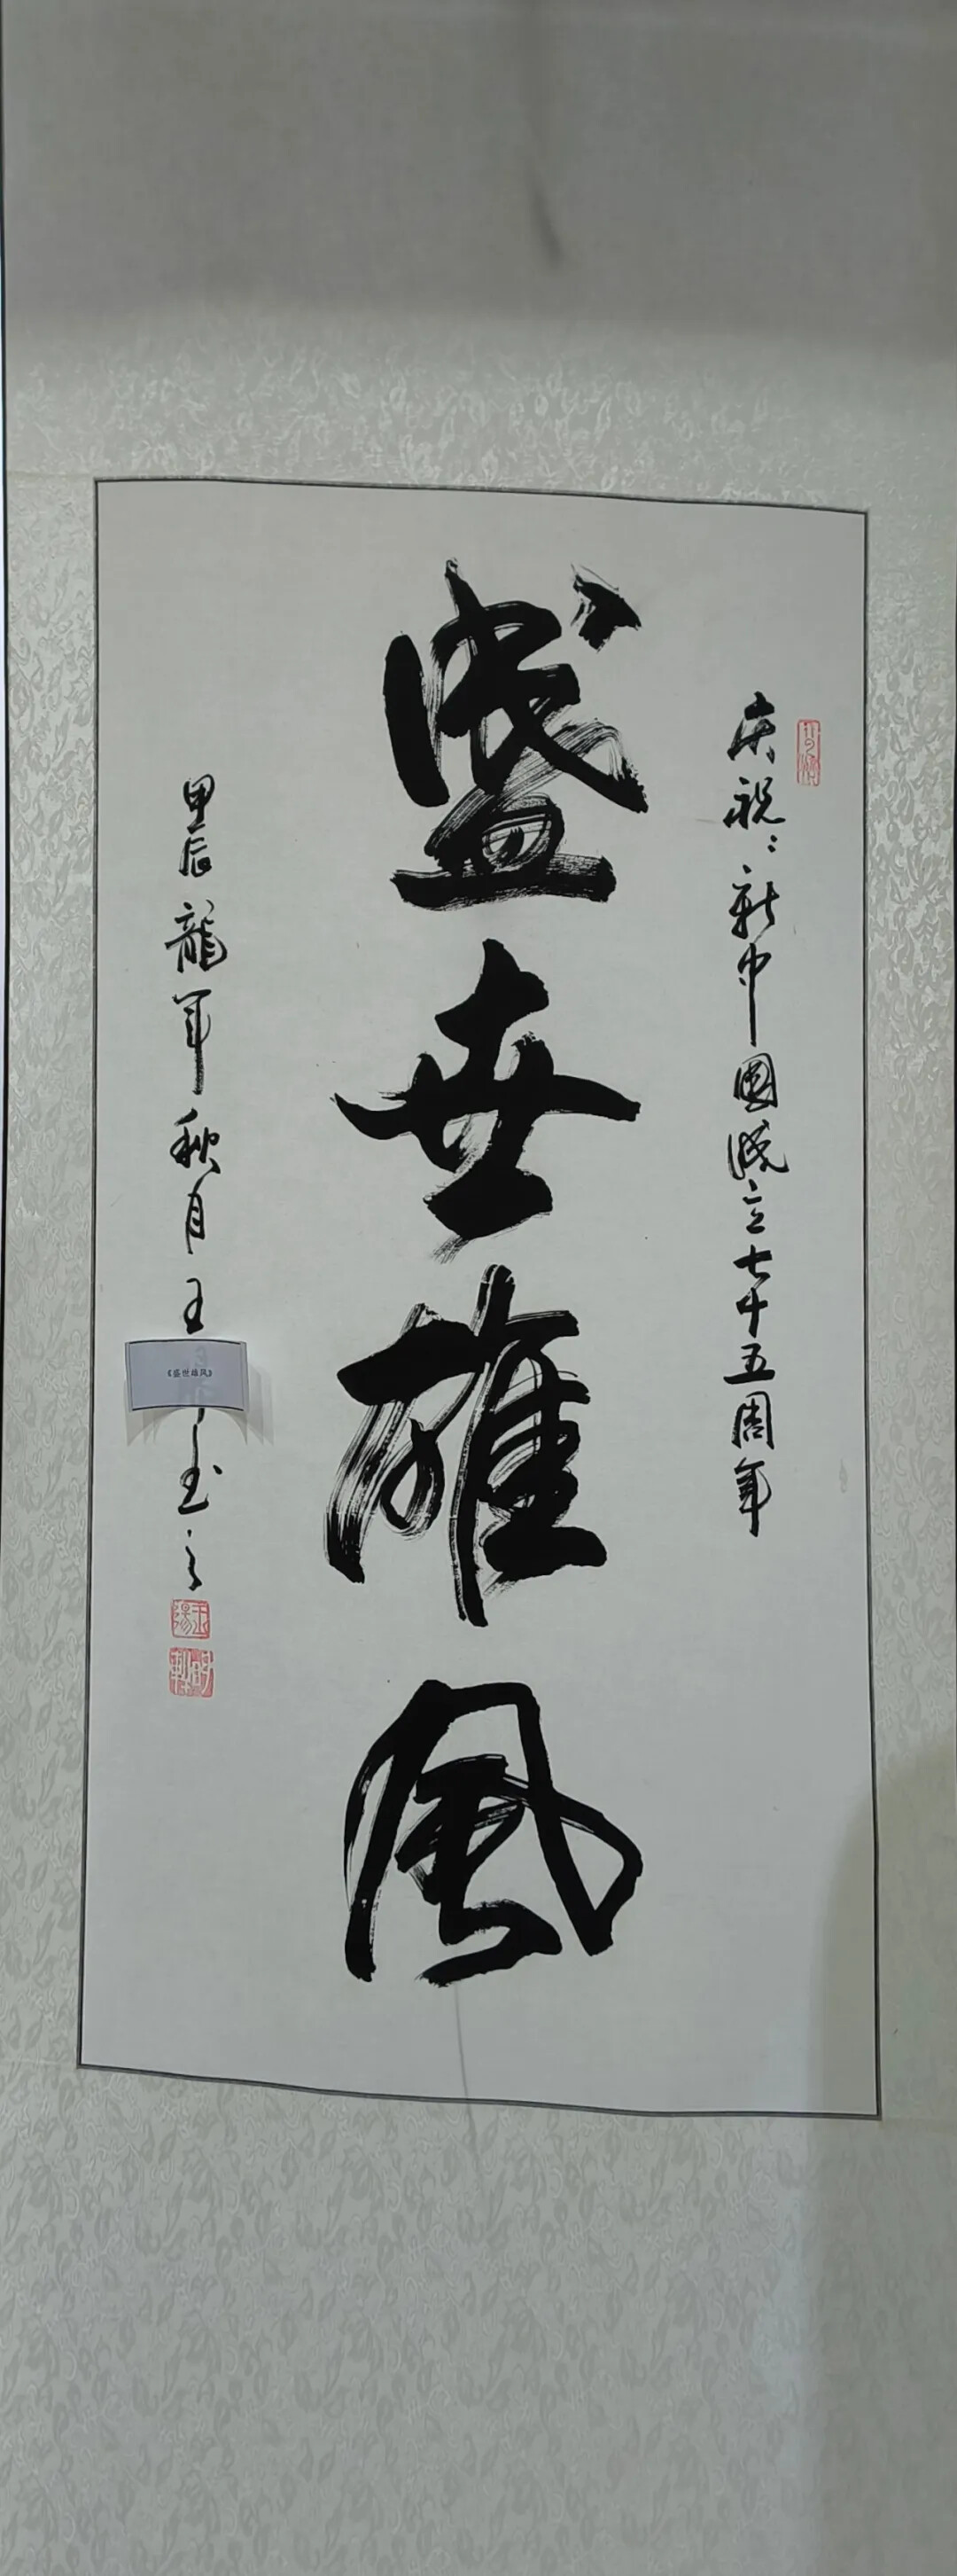 庆祝：新中國成立七十五周年
盛世雄风
甲辰龍年秋月王
玉之
《盛世雄风》